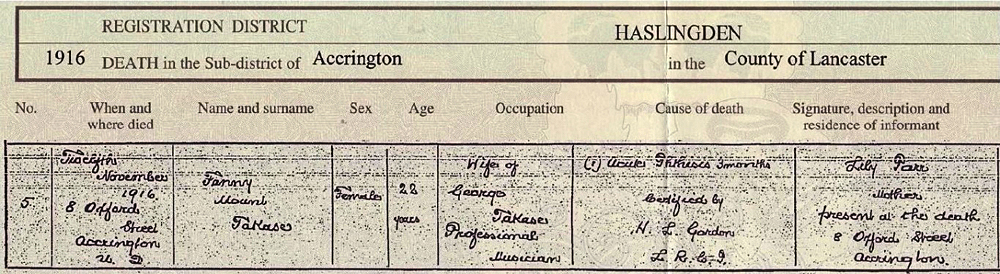 REGISTRATION DISTRICT HASLINGDEN
1916 DEATH in the Sub-district of Accrington in the County of Lancaster
No. When and where died Name and surname Sex Age Occupation Cause of death Signature, description and residence of informant
5.
Twelfth
November
1916
8 Orford
Street
Accrington
U. D
Fanny
Mount
Takase
Female
28
years
Wife of
George
Takase
Professional
Musician
(1) Acute Phthisis 3 months
Certified by
H. L. Gordon
L R C
Lily Parr
Mother
present at the death
8 Orford Street
Accrington.